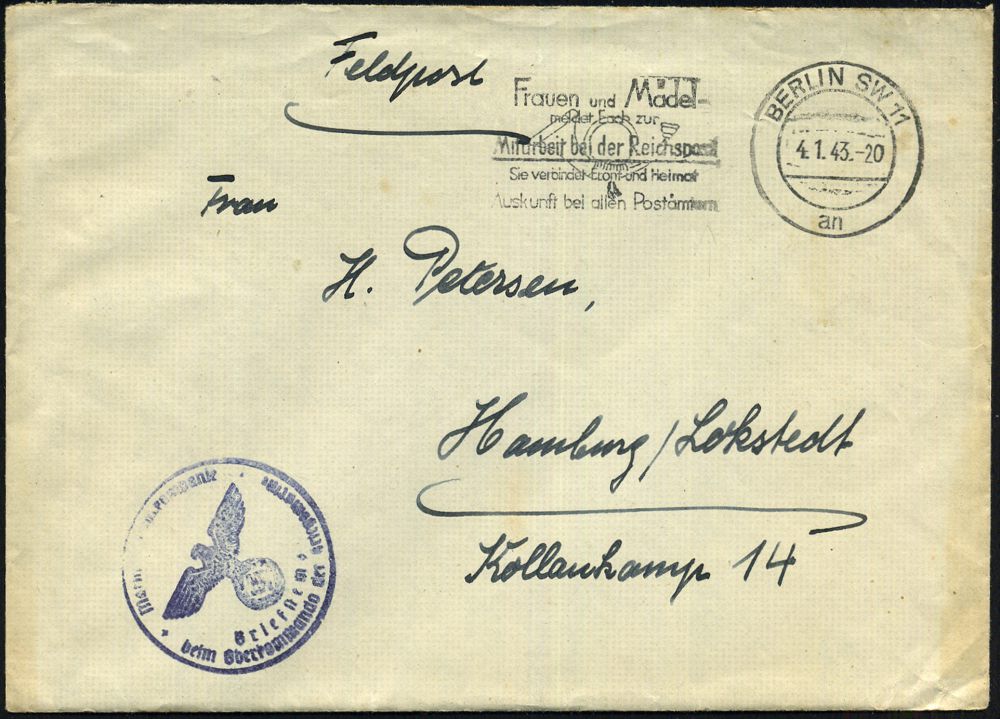 Feldpost
Frauen und Mädel-
meldet Euch zur
Mitarbeit bei der Reichspost
Sie verbindet Front und Heimat
Auskunft bei allen Postämtern
BERLIN SW 11
4.1.43.-20
an
Frau
H. Petersen,
Hamburg/Lokstedt
Kollaukamp 14
Briefstem
beim Oberkommando der Kriegsmarine